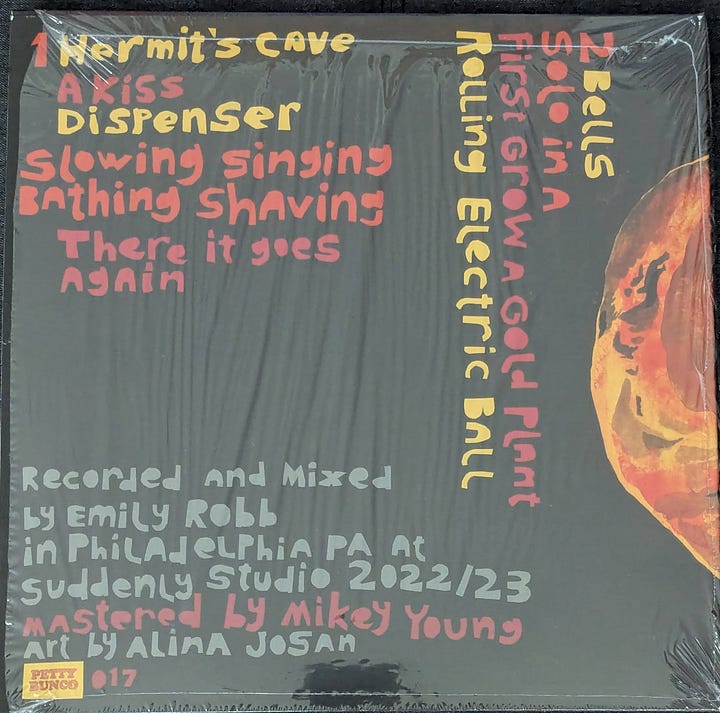 1 Hermit's Cave
A Kiss
Dispenser
Slowing Singing
Bathing Shaving
There it goes
Again
2 Bells
Solo in A
First Grow A Gold Plant
Rolling Electric Ball
Recorded and Mixed
by Emily Robb
in Philadelphia PA At
Suddenly Studio 2022/23
Mastered by Mikey Young
Art by Alina Josan
PETTY
BUNCO
017